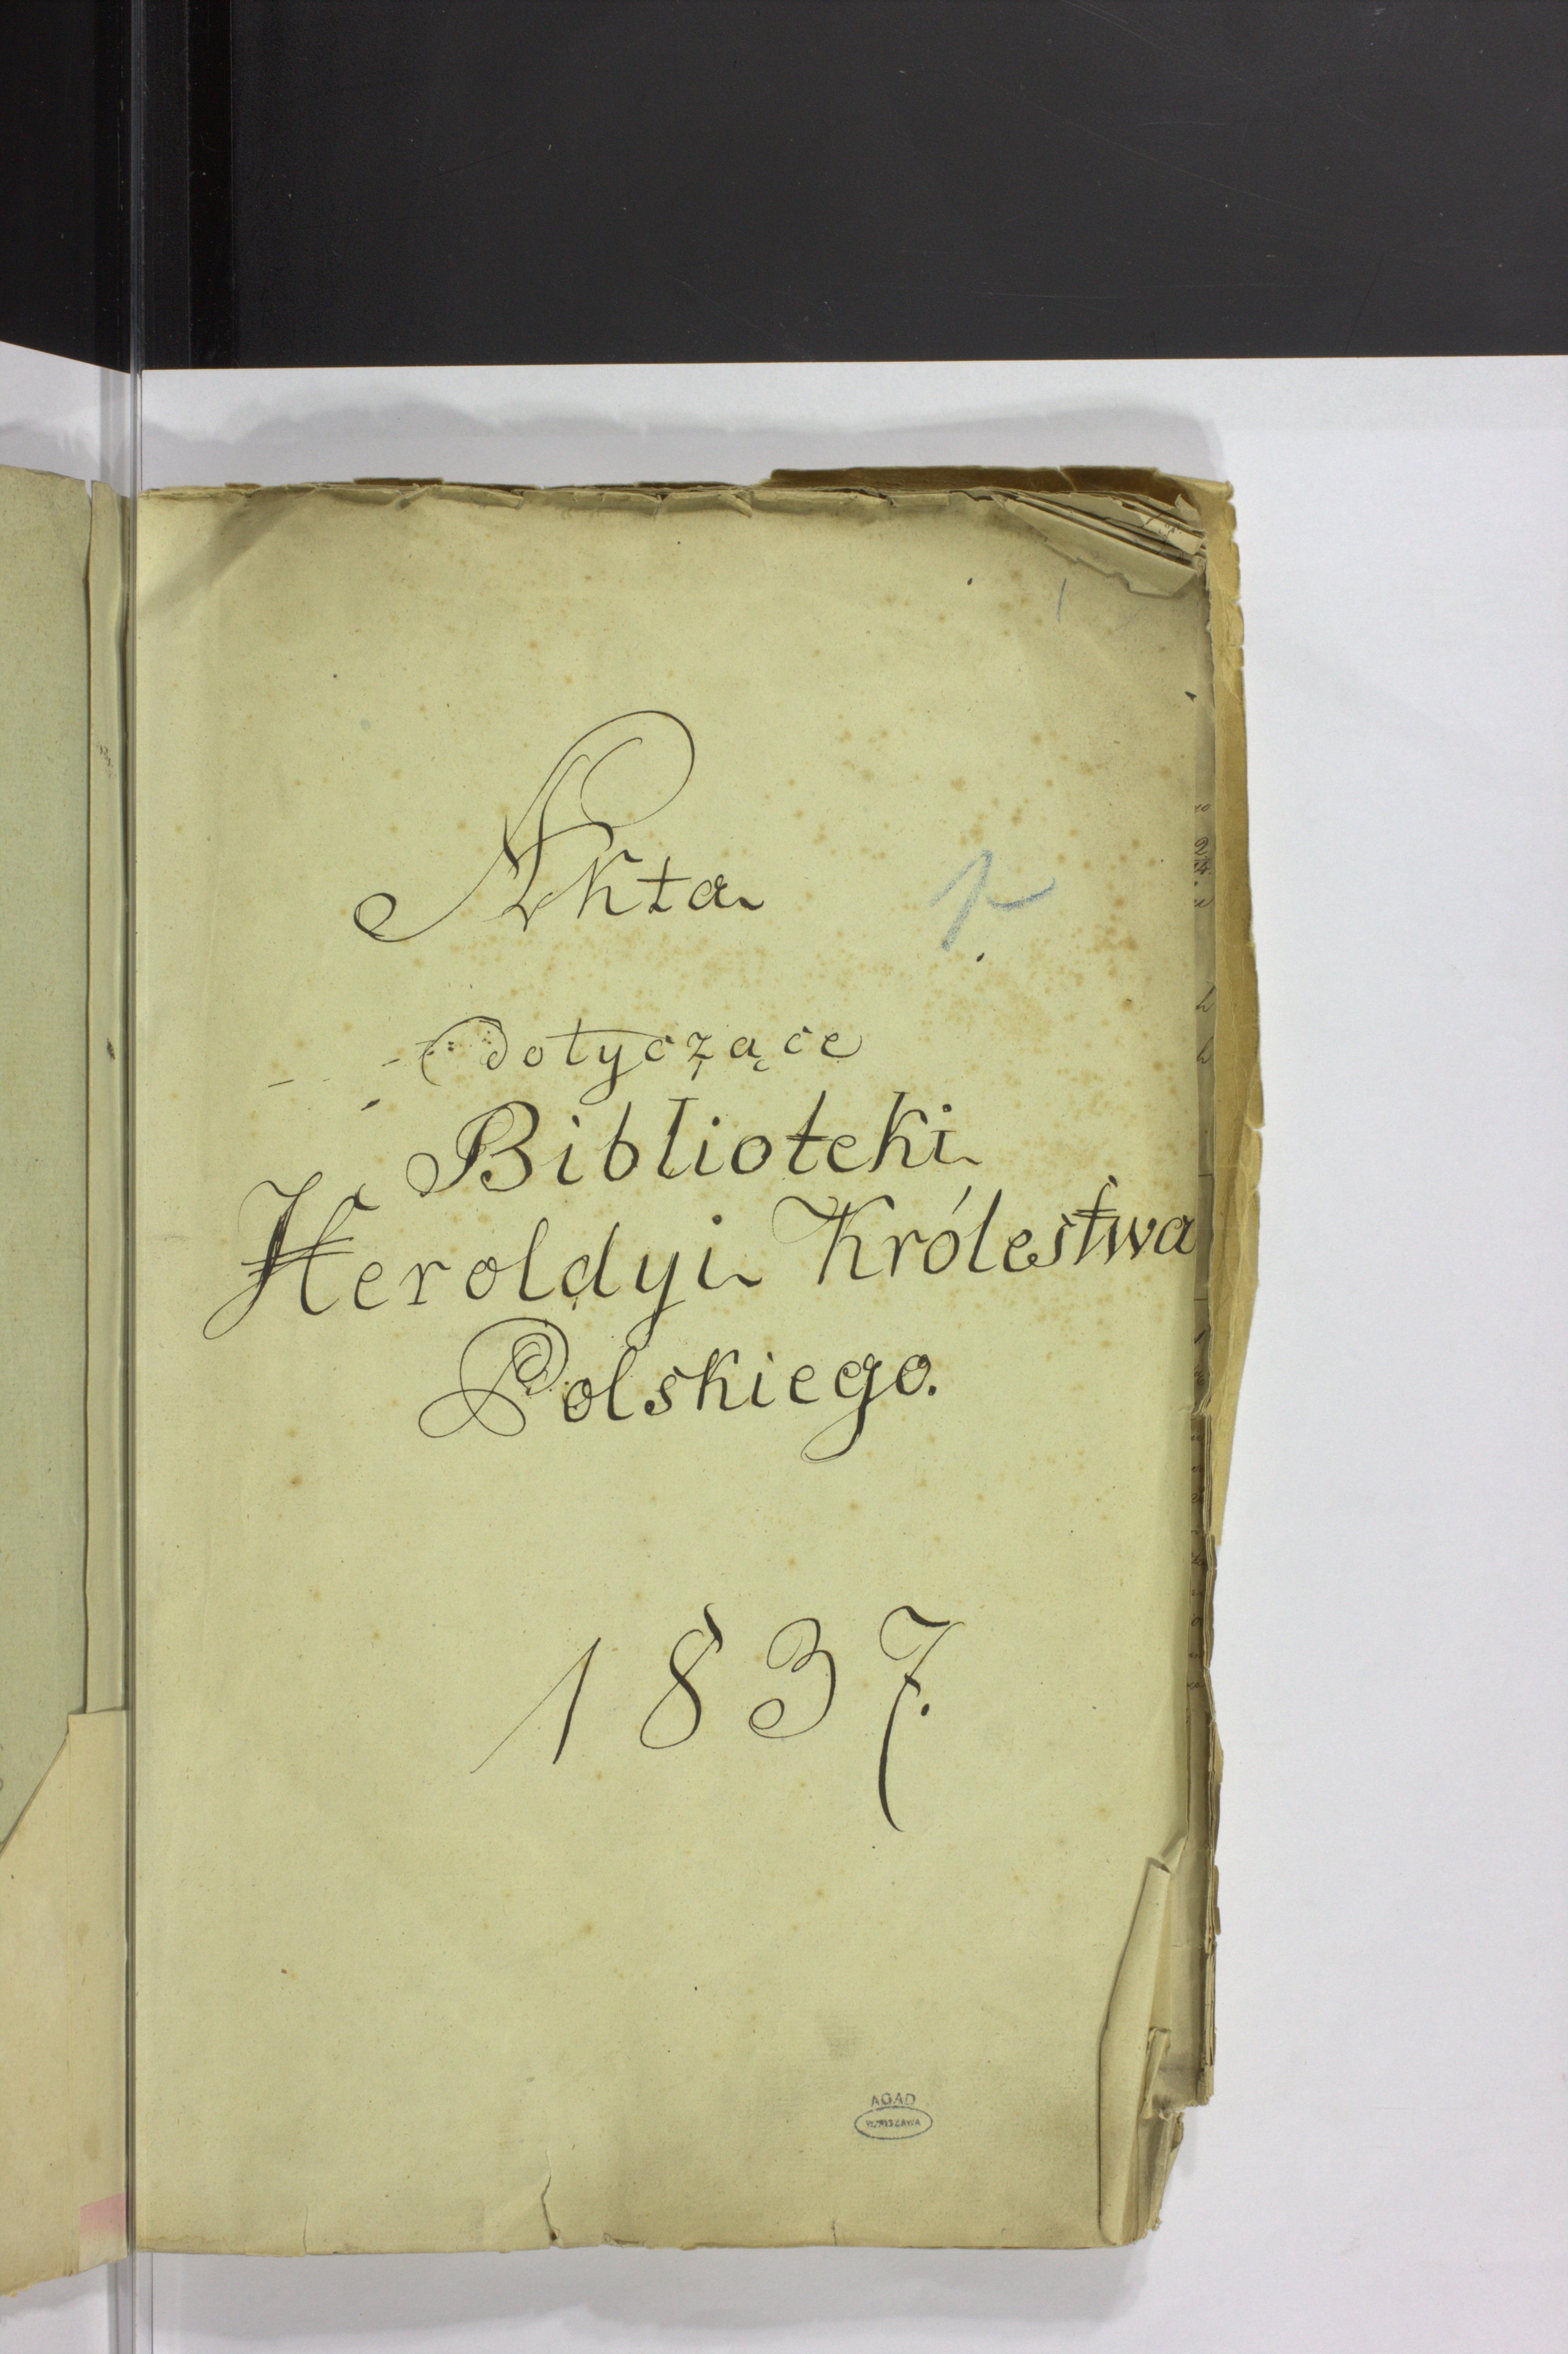 1
Akta
dotyczące
Biblioteki
Heroldyi Królestwa
Polskiego.
1837.
AGAD
WARSZAWA